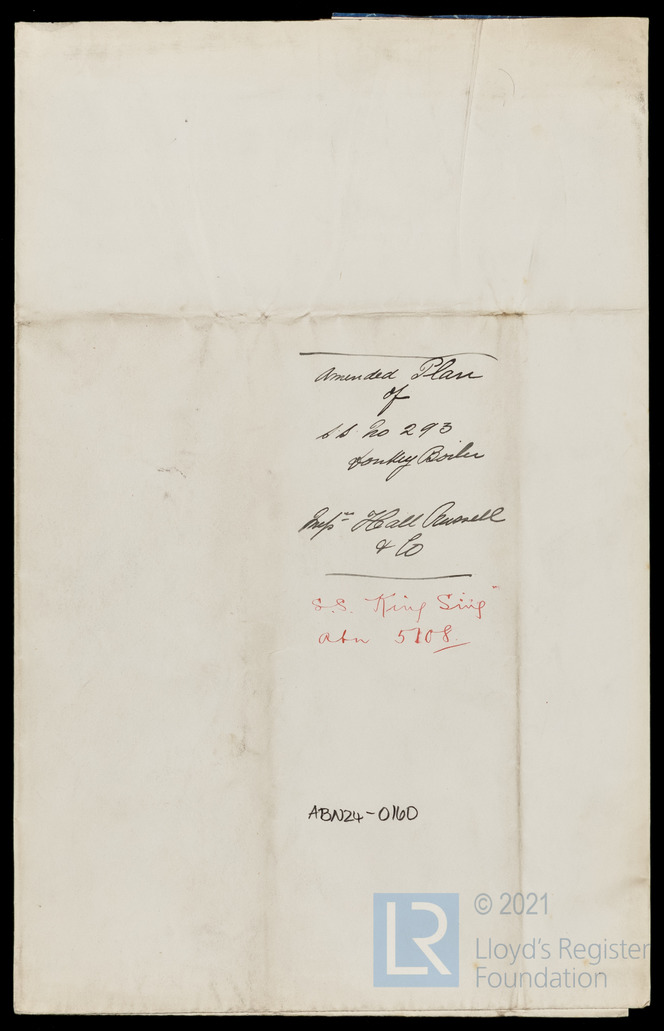 Amended Plan
of
S.S. No 293
Donkey Boiler
Messrs Hall Russell
& Co
S.S. "King Sing"
Abn 5108.
ABN24-0160
LR
© 2021
Lloyd's Register
Foundation